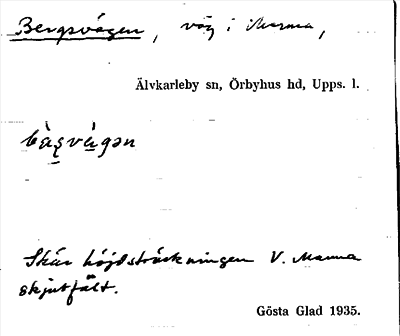 Bergsvägen, väg i Marma,
Älvkarleby sn, Örbyhus hd, Upps. l.
bàʂvàgən
Skär höjdsträckningen V. Marma
skjutfält.
Gösta Glad 1935.